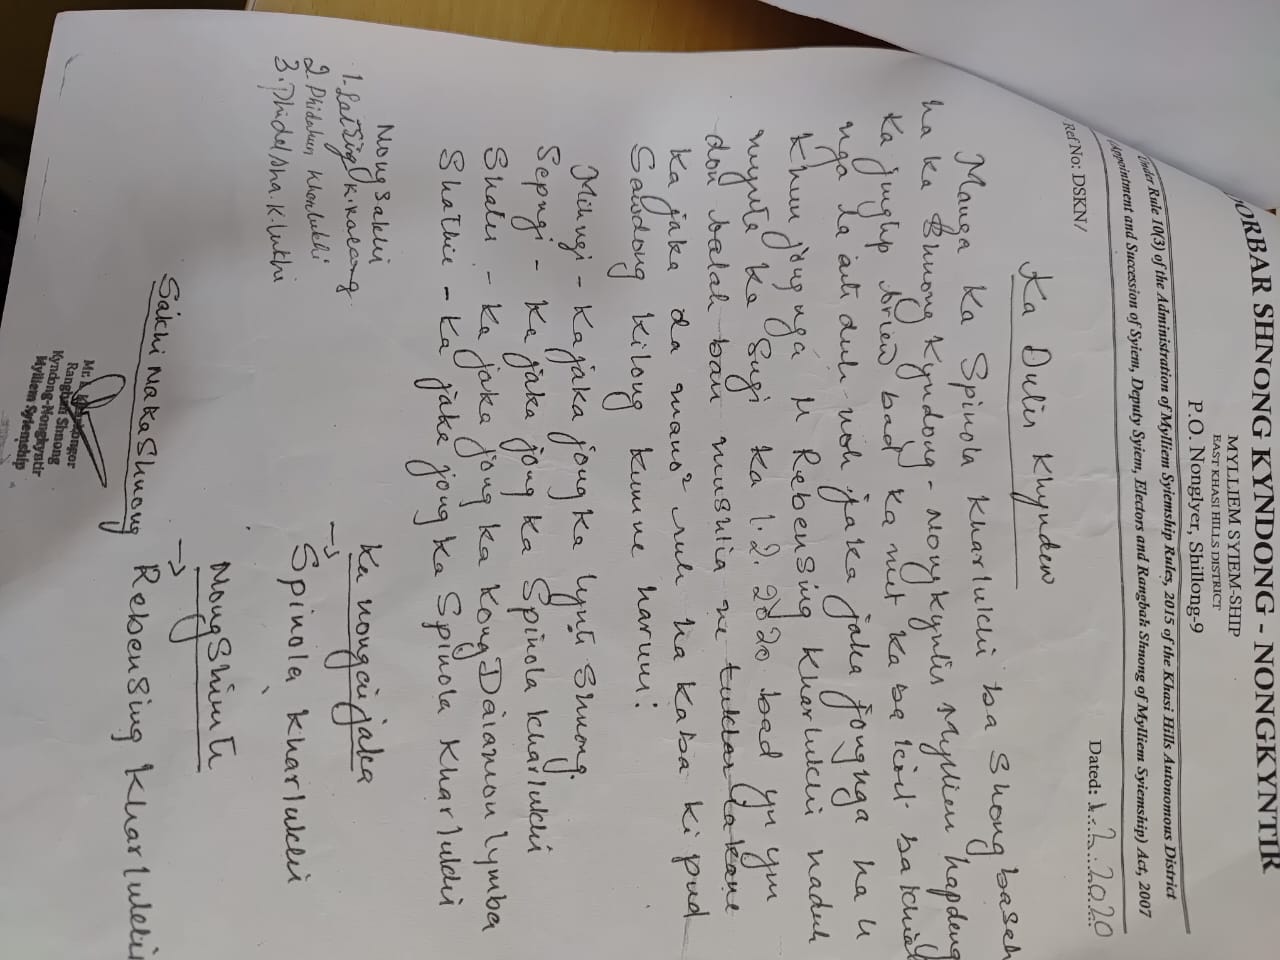 DORBAR SHNONG KYNDONG - NONGKYNTIR
MYLLIEM SYIEM-SHIP
EAST KHASI HILLS DISTRICT
P.O. Nonglyer, Shillong-9
Under Rule 10(3) of the Administration of Mylliem Syiemship Rules, 2015 of the Khasi Hills Autonomous District
(Appointment and Succession of Syiem, Deputy Syiem, Electors and Rangbah Shnong of Mylliem Syiemship) Act, 2007
Ref No: DSKN/
Dated: 1.2.2020
Ka Dulir Khyndew
Manga Ka Spinola Kharlukhi ba Shong basah
ha ka Shnong Kyndong - Nongkyntir Mylliem hapdeng
Ka jinglip briew bad ka met ka ba koit ba khiah
nga la aiti duh noh jaka jaka jong nga ha u
Khun jong nga U Rebensing Kharlukhi naduh
mynta ka Sngi ka 1.2.2020 bad yn ym
don batah ban musulia ne tuklar ia kane
Ka jaka da mano² ruh ha kaba ki pud
Sawdong kilong kumne harum:
Mihngi - Ka jaka jong ka lynti Shnong.
Sepngi - Ka jaka jong ka Spinola Kharlukhi
Shatei - Ka jaka jong ka Kong Daiamon lymba
Shathie - Ka jaka jong ka Spinola Kharlukhi
Nongsakhi
1. K. Kalang
2. Phidakun Kharlukhi
3. K. lukhi
Ka nongai jaka
→ Spinola Kharlukhi
Nongshimti
→ Rebensing Kharlukhi
Sakhi Naka Shnong
Mr.
Rangbah Shnong
Kyndong-Nongkyntir
Mylliem Syiemship